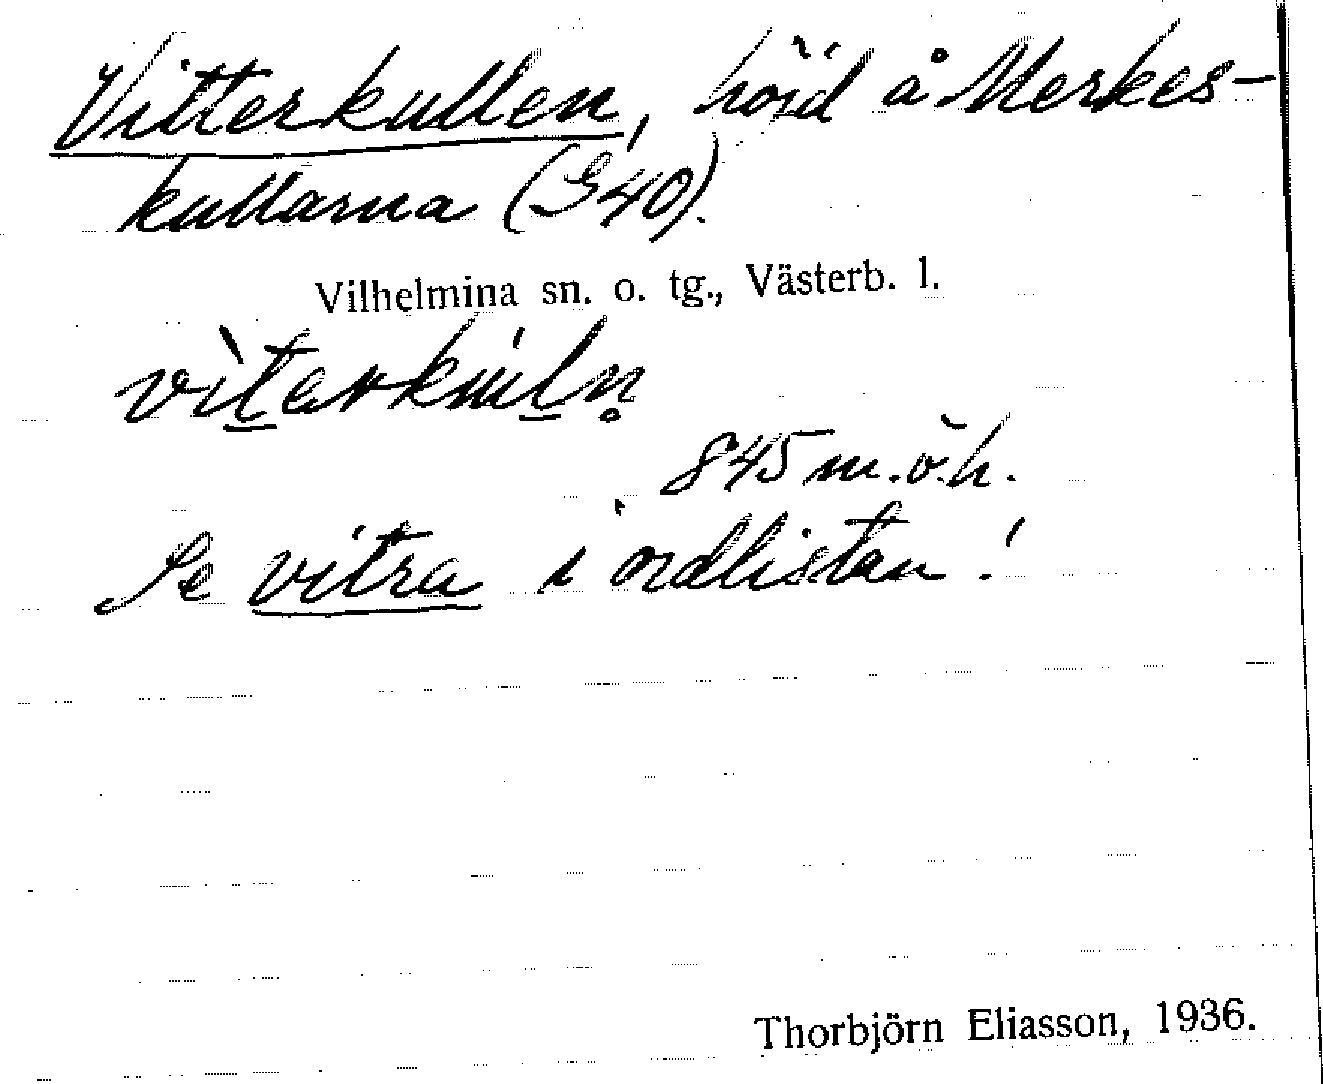 Vitterkullen, höjd å Merkes-
kullarna (G40).
Vilhelmina sn. o. tg., Västerb. l.
845 m.ö.h.
Se vitra i ordlistan!
Thorbjörn Eliasson, 1936.